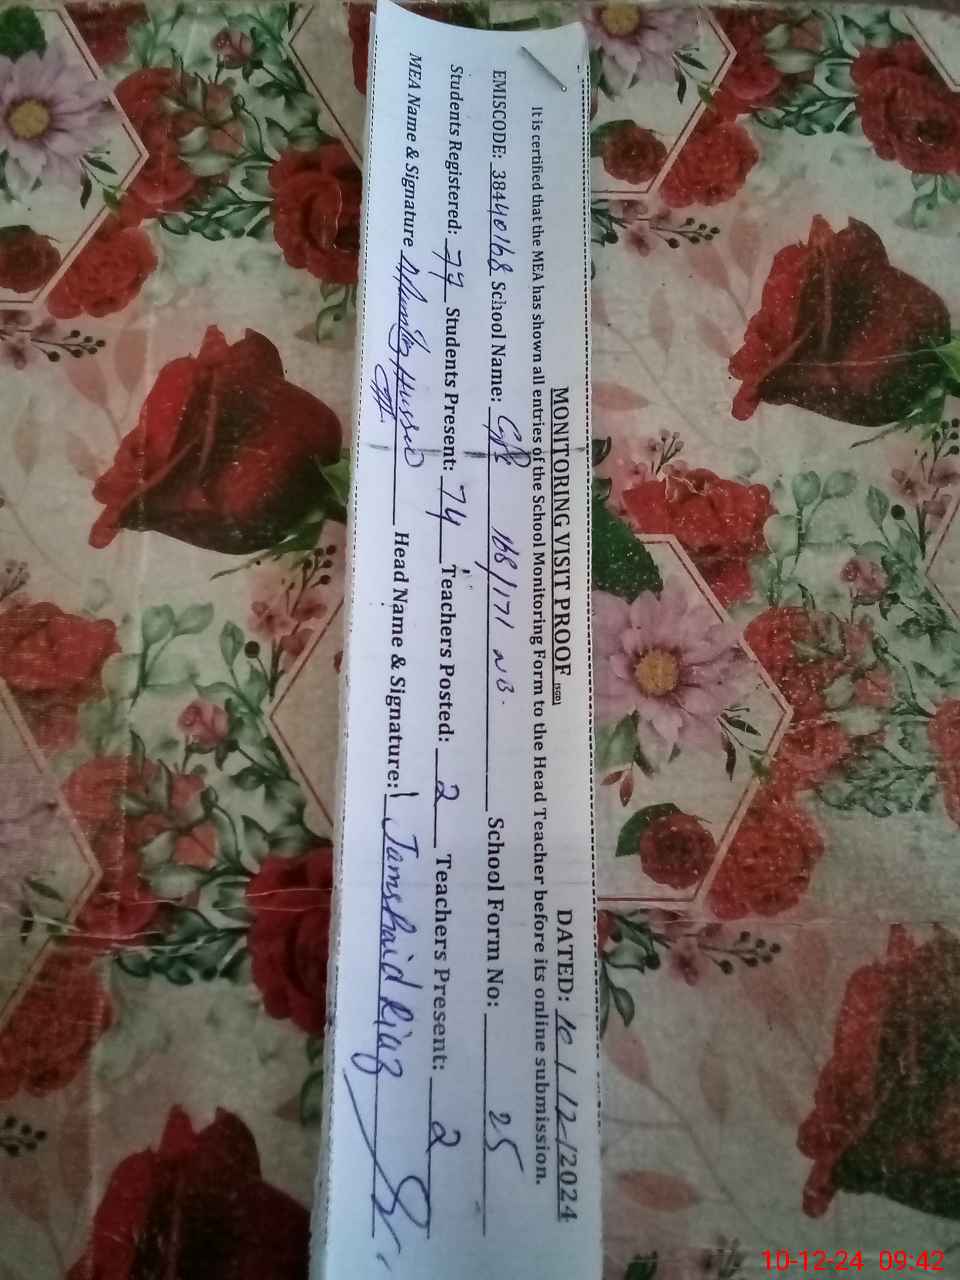 MONITORING VISIT PROOF (SGD) DATED: 10 / 12 /2024
It is certified that the MEA has shown all entries of the School Monitoring Form to the Head Teacher before its online submission.
EMISCODE: 38440168 School Name: GPS 168/171 NB. School Form No: 25
Students Registered: 77 Students Present: 74 Teachers Posted: 2 Teachers Present: 2
MEA Name & Signature Hussain Head Name & Signature: Jamshaid Riaz
10-12-24 09:42